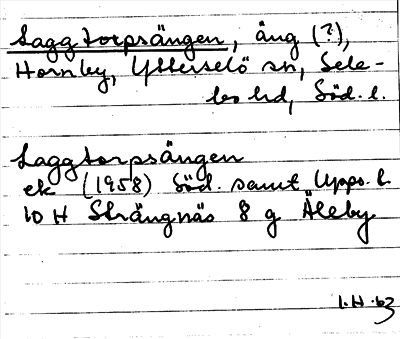 Laggtorpsängen, äng (?),
Hornby, Ytterselö sn, Sele-
bo hd, Söd. l.
Laggtorpsängen
ek (1958) Söd. samt Upps. l.
10 H Strängnäs 8 g Åleby
I.H. 63